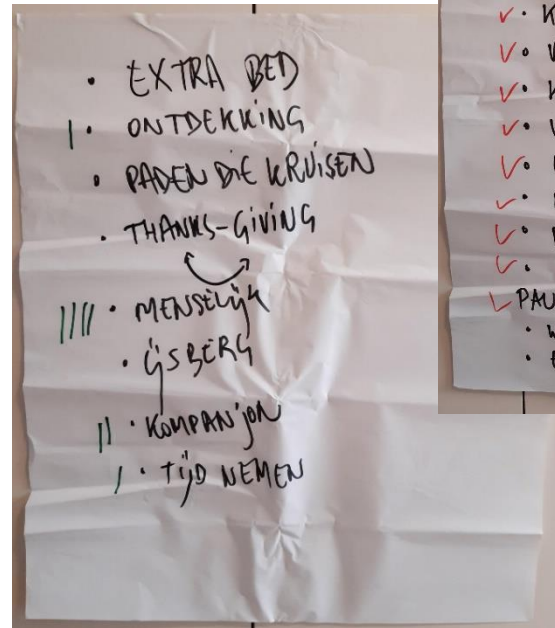 • EXTRA BED
| • ONTDEKKING
• PADEN DIE KRUISEN
• THANKS-GIVING
|||| • MENSELIJK
• IJSBERG
|| • KOMPANJON
| • TIJD NEMEN
✓ • K
✓ • 
✓ • 
✓ • 
✓ • 
✓ • 
✓ • 
✓ • 
✓ PAU